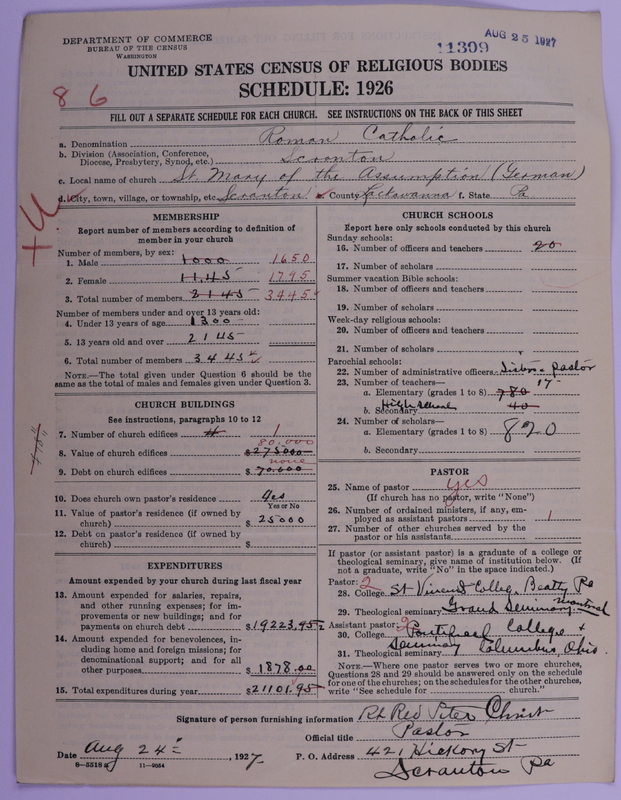 DEPARTMENT OF COMMERCE
BUREAU OF THE CENSUS
WASHINGTON
11309
AUG 25 1927
UNITED STATES CENSUS OF RELIGIOUS BODIES
SCHEDULE: 1926
8 6
FILL OUT A SEPARATE SCHEDULE FOR EACH CHURCH. SEE INSTRUCTIONS ON THE BACK OF THIS SHEET
a. Denomination Roman Catholic
b. Division (Association, Conference, Diocese, Presbytery, Synod, etc.) Scranton
c. Local name of church St. Mary of the Assumption (German)
d. City, town, village, or township, etc. Scranton e. County Lackawanna f. State Pa
MEMBERSHIP
Report number of members according to definition of member in your church
Number of members, by sex:
1. Male 1000 1650
2. Female 1145 1795
3. Total number of members 2145 3445
Number of members under and over 13 years old:
4. Under 13 years of age 1300
5. 13 years old and over 2145
6. Total number of members 3445
NOTE.—The total given under Question 6 should be the same as the total of males and females given under Question 3.
CHURCH BUILDINGS
See instructions, paragraphs 10 to 12
7. Number of church edifices 1
80,000
8. Value of church edifices $275000
none
9. Debt on church edifices $70.000
10. Does church own pastor's residence Yes
Yes or No
11. Value of pastor's residence (if owned by church) $25000
12. Debt on pastor's residence (if owned by church) $
EXPENDITURES
Amount expended by your church during last fiscal year
13. Amount expended for salaries, repairs, and other running expenses; for improvements or new buildings; and for payments on church debt $19223.95
14. Amount expended for benevolences, including home and foreign missions; for denominational support; and for all other purposes $1878.00
15. Total expenditures during year $21101.95
CHURCH SCHOOLS
Report here only schools conducted by this church
Sunday schools:
16. Number of officers and teachers 20
17. Number of scholars
Summer vacation Bible schools:
18. Number of officers and teachers
19. Number of scholars
Week-day religious schools:
20. Number of officers and teachers
21. Number of scholars
Parochial schools:
22. Number of administrative officers Sisters & Pastor
23. Number of teachers— 17
a. Elementary (grades 1 to 8) 780
b. Secondary High School 40
24. Number of scholars—
a. Elementary (grades 1 to 8) 820
b. Secondary
PASTOR
25. Name of pastor yes
(If church has no pastor, write "None")
26. Number of ordained ministers, if any, employed as assistant pastors 1
27. Number of other churches served by the pastor or his assistants
If pastor (or assistant pastor) is a graduate of a college or theological seminary, give name of institution below. (If not a graduate, write "No" in the space indicated.)
Pastor: 2
28. College St Vincent College Beatty Pa
29. Theological seminary Grand Seminary Montreal
Assistant pastor: 2
30. College Pontifical College &
31. Theological seminary Seminary Columbus, Ohio.
NOTE.—Where one pastor serves two or more churches, Questions 28 and 29 should be answered only on the schedule for one of the churches; on the schedules for the other churches, write "See schedule for church."
Signature of person furnishing information Rt Rev Peter Christ
Official title Pastor
Date Aug 24, 1927. P. O. Address 421 Hickory St
Scranton Pa
8—5518a 11—9054